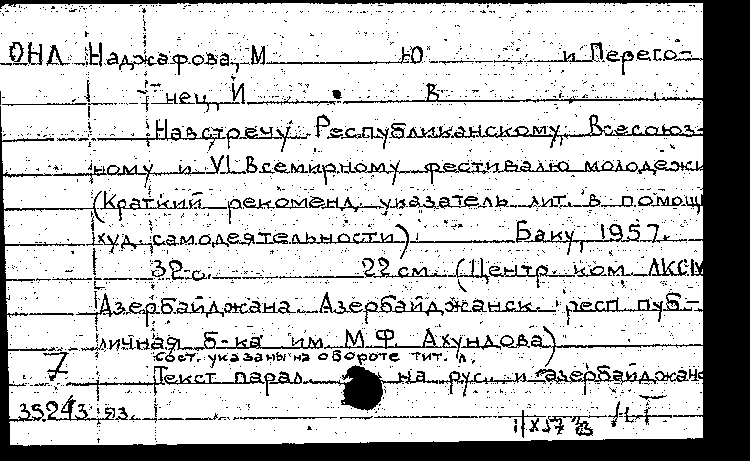 ОНЛ Наджафова, М Ю и Перего-
нец, И В
Навстречу Республиканскому, Всесоюз-
ному и VI Всемирному фестивалю молодежи
(Краткий рекоменд. указатель лит. в помощь
худ. самодеятельности) Баку, 1957.
32 с. 22 см. (Центр. ком ЛКСМ
Азербайджана. Азербайджанск. респ. пуб-
личная б-ка им. М.Ф. Ахундова)
Сост. указаны на обороте тит. л.
7 Текст парал. на рус. и азербайджанс
35243 рз.